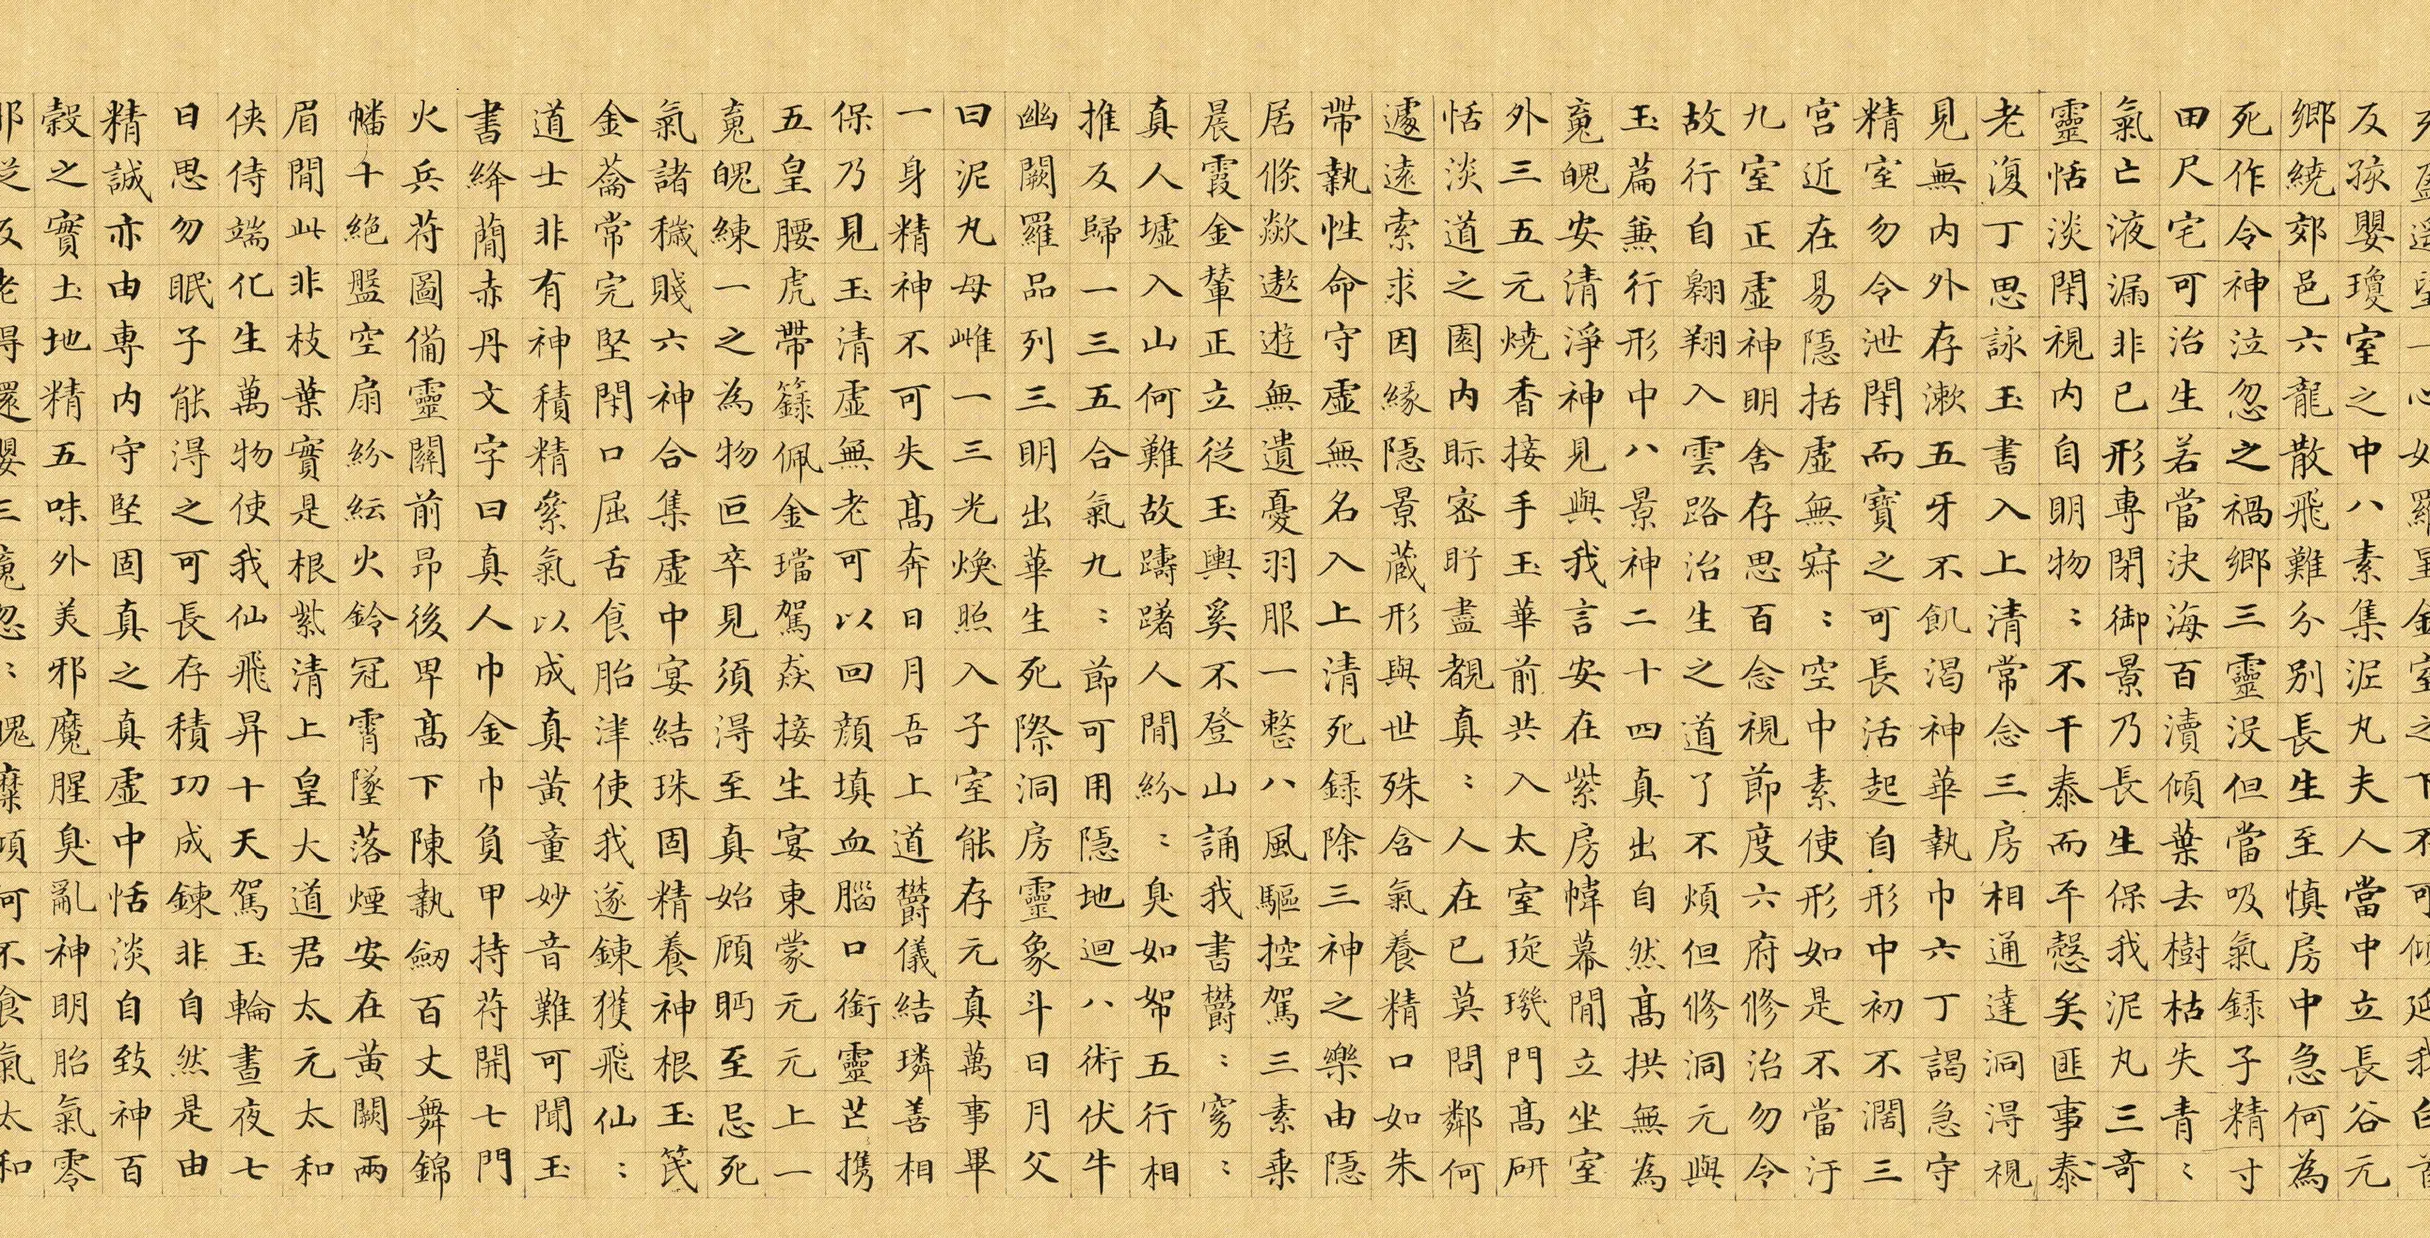 遥望一心如羅星金室之下不可傾延我白首
反孩嬰瓊室之中八素集泥丸夫人當中立長谷元
鄉繞郊邑六龍散飛難分別長生至慎房中急何為
死作令神泣忽之禍鄉三靈沒但當吸氣録子精寸
田尺宅可治生若當決海百瀆傾葉去樹枯失青〻
氣亡液漏非已形專閉御景乃長生保我泥丸三竒
靈恬淡閑視内自明物〻不干泰而平愨矣匪事泰
老復丁思詠玉書入上清常念三房相通達洞得視
見無内外存漱五牙不飢渴神華執巾六丁謁急守
精室勿令泄閑而寶之可長活起自形中初不濶三
宮近在易隱括虛無寂〻空中素使形如是不當汙
九室正虛神明舍存思百念視節度六府修治勿令
故行自翱翔入雲路治生之道了不煩但修洞元與
玉篇兼行形中八景神二十四真出自然髙拱無為
䰟魄安清淨神見與我言安在紫房幃幕閒立坐室
外三五元燒香接手玉華前共入太室琁璣門髙研
恬淡道之園内眎密盱盡覩真〻人在已莫問鄰何
遽遠索求因緣隱景藏形與世殊含氣養精口如朱
帶執性命守虛無名入上清死録除三神之樂由隱
居倏欻遨遊無遺憂羽服一整八風驅控駕三素乗
晨霞金輦正立從玉輿奚不登山誦我書鬱〻窈〻
真人墟入山何難故躊躇人閒紛〻臭如帤五行相
推反歸一三五合氣九〻節可用隱地迴八術伏牛
幽闕羅品列三明出華生死際洞房靈象斗日月父
曰泥丸母雌一三光煥照入子室能存元真萬事畢
一身精神不可失髙奔日月吾上道鬱儀結璘善相
保乃見玉清虛無老可以回顏填血腦口銜靈芒携
五皇腰虎帶籙佩金璫駕焱接生宴東蒙元元上一
䰟魄練一之為物叵卒見須得至真始顧眄至忌死
氣諸穢賤六神合集虛中宴結珠固精養神根玉笢
金籥常完堅閉口屈舌食胎津使我遂鍊獲飛仙〻
道士非有神積精累氣以成真黄童妙音難可聞玉
書絳蕳赤丹文字曰真人巾金巾負甲持苻開七門
火兵苻圖備靈關前昂後卑髙下陳執劒百丈舞錦
幡十絶盤空扇紛紜火鈴冠霄墜落煙安在黄闕兩
眉閒此非枝葉實是根紫清上皇大道君太元太和
俠侍端化生萬物使我仙飛昇十天駕玉輪晝夜七
日思勿眠子能得之可長存積功成鍊非自然是由
精誠亦由專内守堅固真之真虛中恬淡自致神百
榖之實土地精五味外美邪魔腥臭亂神明胎氣零
那從反老得還嬰三䰟忽〻魄糜傾何不食氣太和